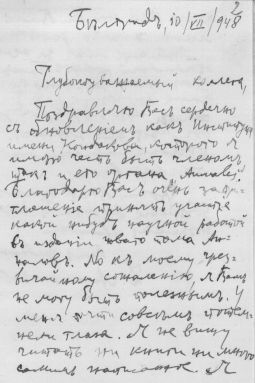 Бѣлградъ, 10/VII/948
Глубокоуважаемый коллега,
Поздравляю Васъ сердечно
съ обновленіемъ какъ Института
имени Кондакова, котораго я
имѣю честь быть членомъ,
такъ и его органа, Анналей.
Благодарю Васъ очень за при-
глашеніе принять участіе
какой нибудь научной работой
въ изданіи тома Ан-
наловъ. Но къ моему чрез-
вычайному сожалѣнію, я Вамъ
не могу быть полезнымъ. У
меня почти совсѣмъ
глаза. Я не вижу
читать ни книги ни мною
самимъ написанное. Я